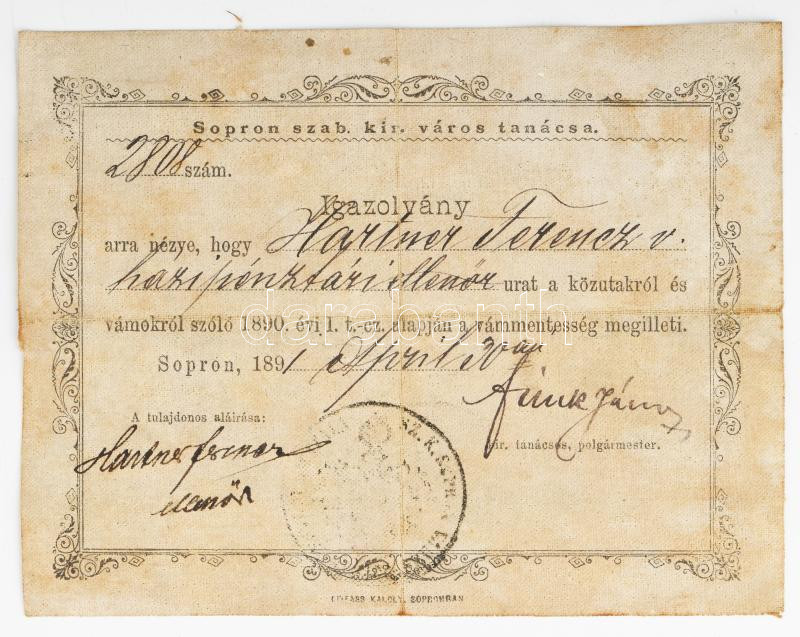 Sopron szab. kir. város tanácsa.
2808 szám.
Igazolvány
arra nézve, hogy Hartner Ferencz v.
házipénztári ellenőr urat a közutakról és
vámokról szóló 1890. évi I. t.-cz. alapján a vámmentesség megilleti.
darabanth
Sopron, 1891 April 30án
Finck János
kir. tanácsos, polgármester.
A tulajdonos aláirása:
Hartner Ferencz
ellenőr
KÁROLY, SOPRONBAN